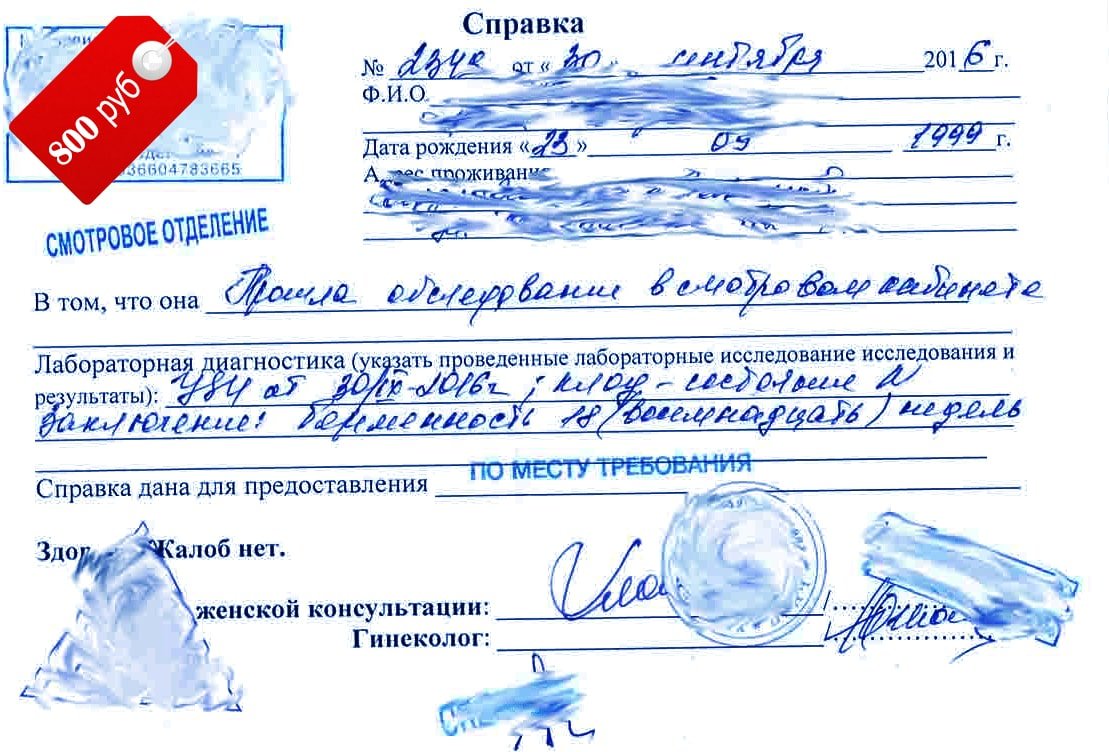 Справка
800 руб
№ 234 от «30» сентября 2016 г.
Ф.И.О.
Дата рождения «23» 09 1999 г.
36604783665
СМОТРОВОЕ ОТДЕЛЕНИЕ
В том, что она Прошла обследование в смотровом кабинете
Лабораторная диагностика (указать проведенные лабораторные исследование исследования и
результаты): УЗИ от 30/IX-2016г; плод - состояние N
Заключение: беременность 18 (восемнадцать) недель
ПО МЕСТУ ТРЕБОВАНИЯ
Справка дана для предоставления
Жалоб нет.
женской консультации:
Гинеколог: